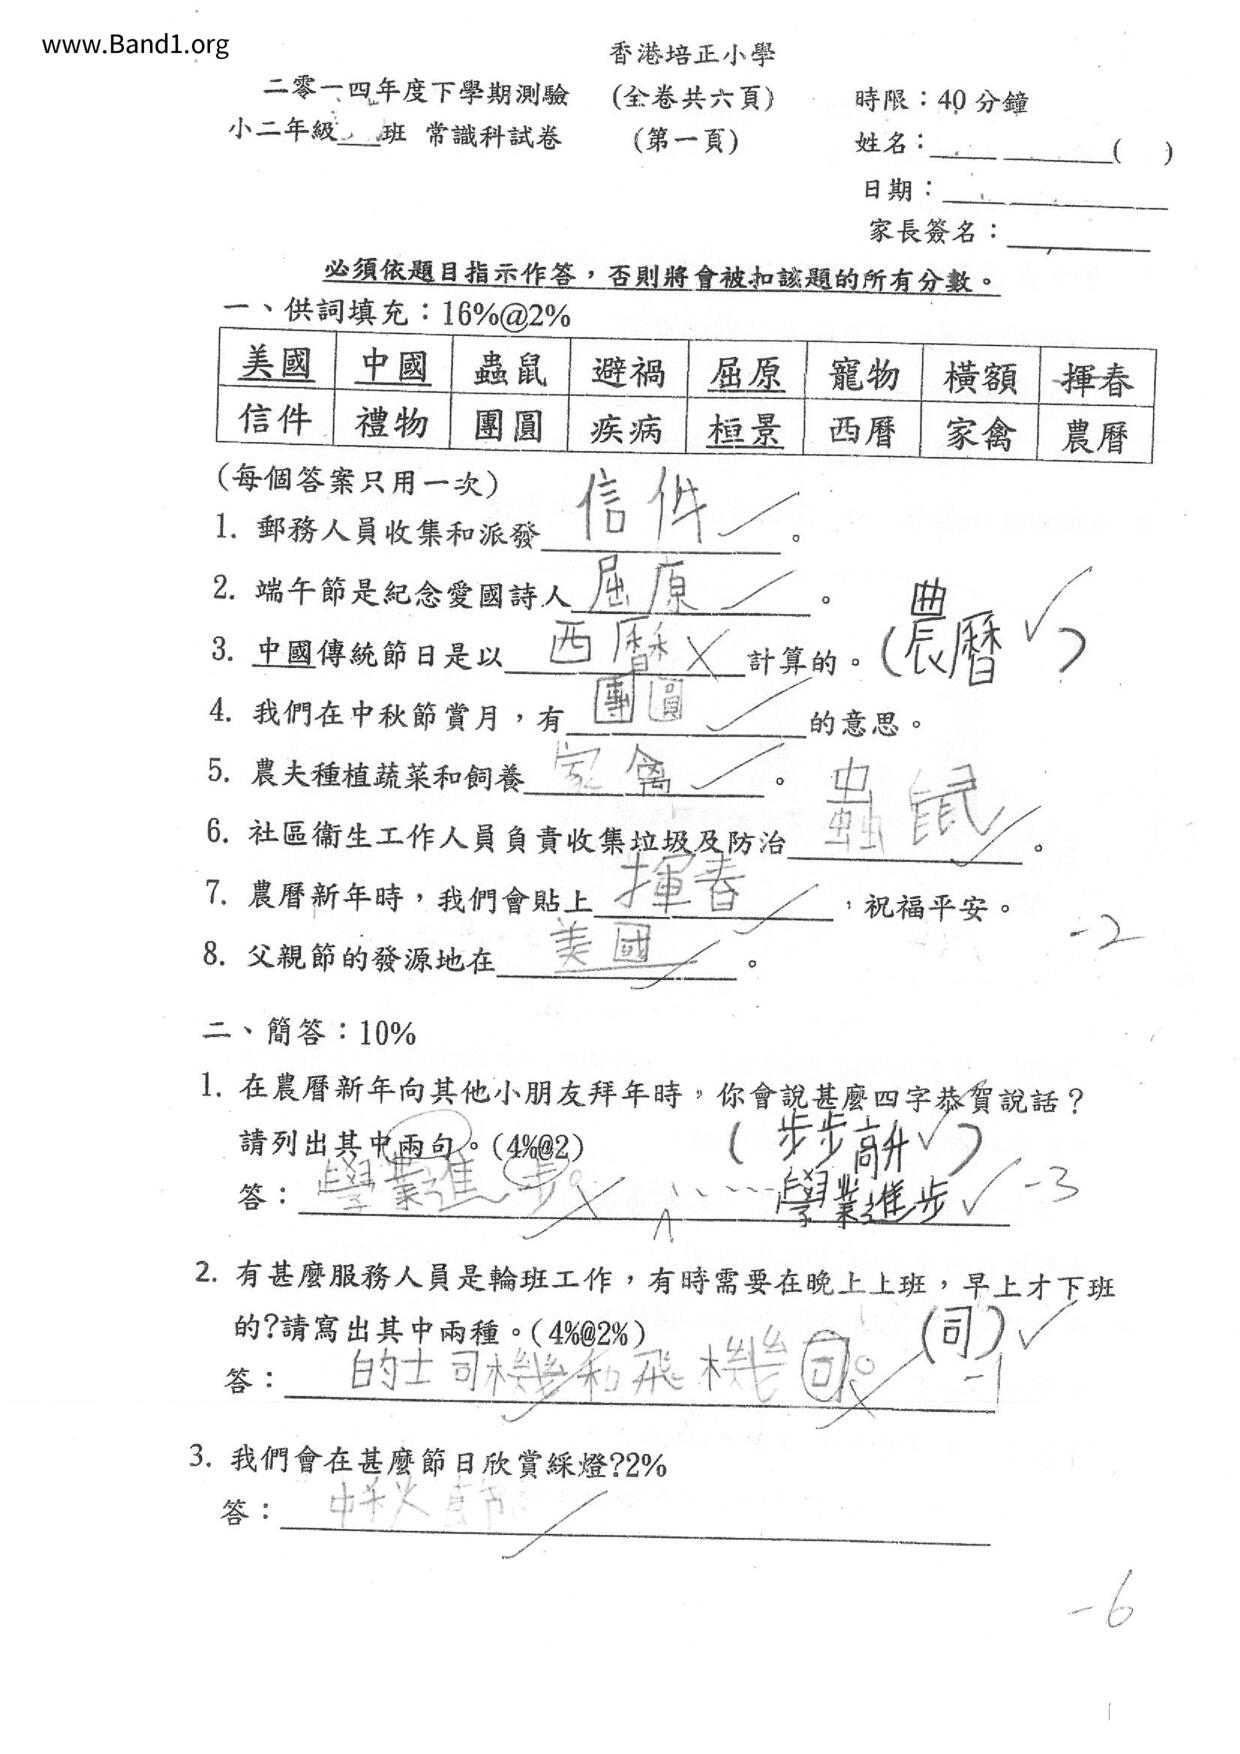 www.Band1.org
香港培正小學
二零一四年度下學期測驗 (全卷共六頁) 時限：40分鐘
小二年級___班 常識科試卷 (第一頁) 姓名：______ ______( )
日期：______
家長簽名：______
必須依題目指示作答，否則將會被扣該題的所有分數。
一、供詞填充：16%@2%
美國 中國 蟲鼠 避禍 屈原 寵物 橫額 揮春
信件 禮物 團圓 疾病 桓景 西曆 家禽 農曆
(每個答案只用一次)
1. 郵務人員收集和派發 信件 。
2. 端午節是紀念愛國詩人 屈原 。
3. 中國傳統節日是以 西曆 計算的。(農曆)
4. 我們在中秋節賞月，有 團圓 的意思。
5. 農夫種植蔬菜和飼養 家禽 。
6. 社區衞生工作人員負責收集垃圾及防治 蟲鼠 。
7. 農曆新年時，我們會貼上 揮春 ，祝福平安。
-2
8. 父親節的發源地在 美國 。
二、簡答：10%
1. 在農曆新年向其他小朋友拜年時，你會說甚麼四字恭賀說話？
請列出其中兩句。(4%@2) (步步高升)
答：學業進步。 學業進步 -3
2. 有甚麼服務人員是輪班工作，有時需要在晚上上班，早上才下班
的?請寫出其中兩種。(4%@2%) (司)
答：的士司機和飛機司。 -1
3. 我們會在甚麼節日欣賞綵燈?2%
答：中秋節
-6